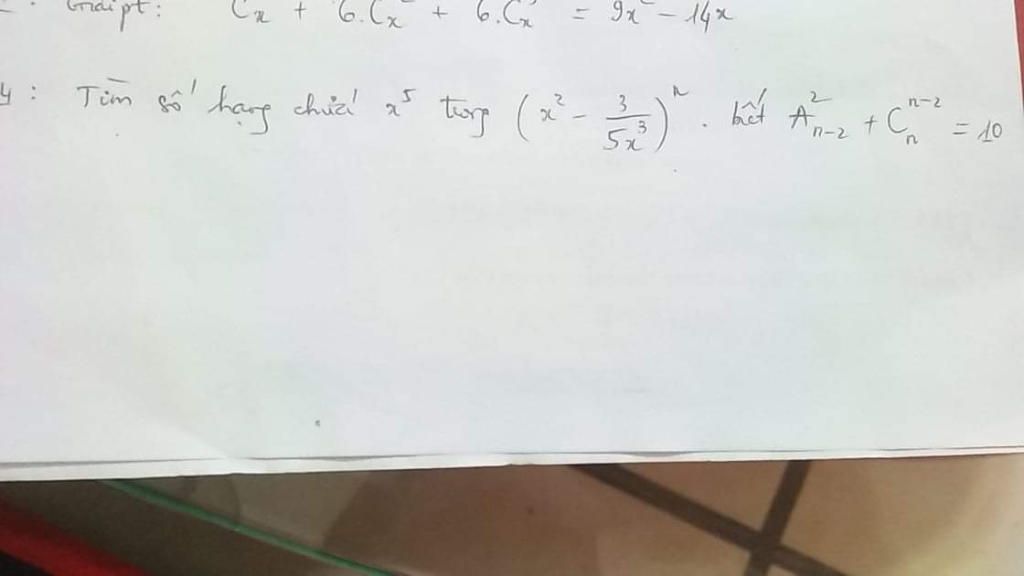 Giải pt: Cx + 6.Cx² + 6.Cx³ = 9x² - 14x
4: Tìm số hạng chứa x⁵ trong (x² - 3/5x³)ⁿ. biết A²ₙ₋₂ + Cₙⁿ⁻² = 10